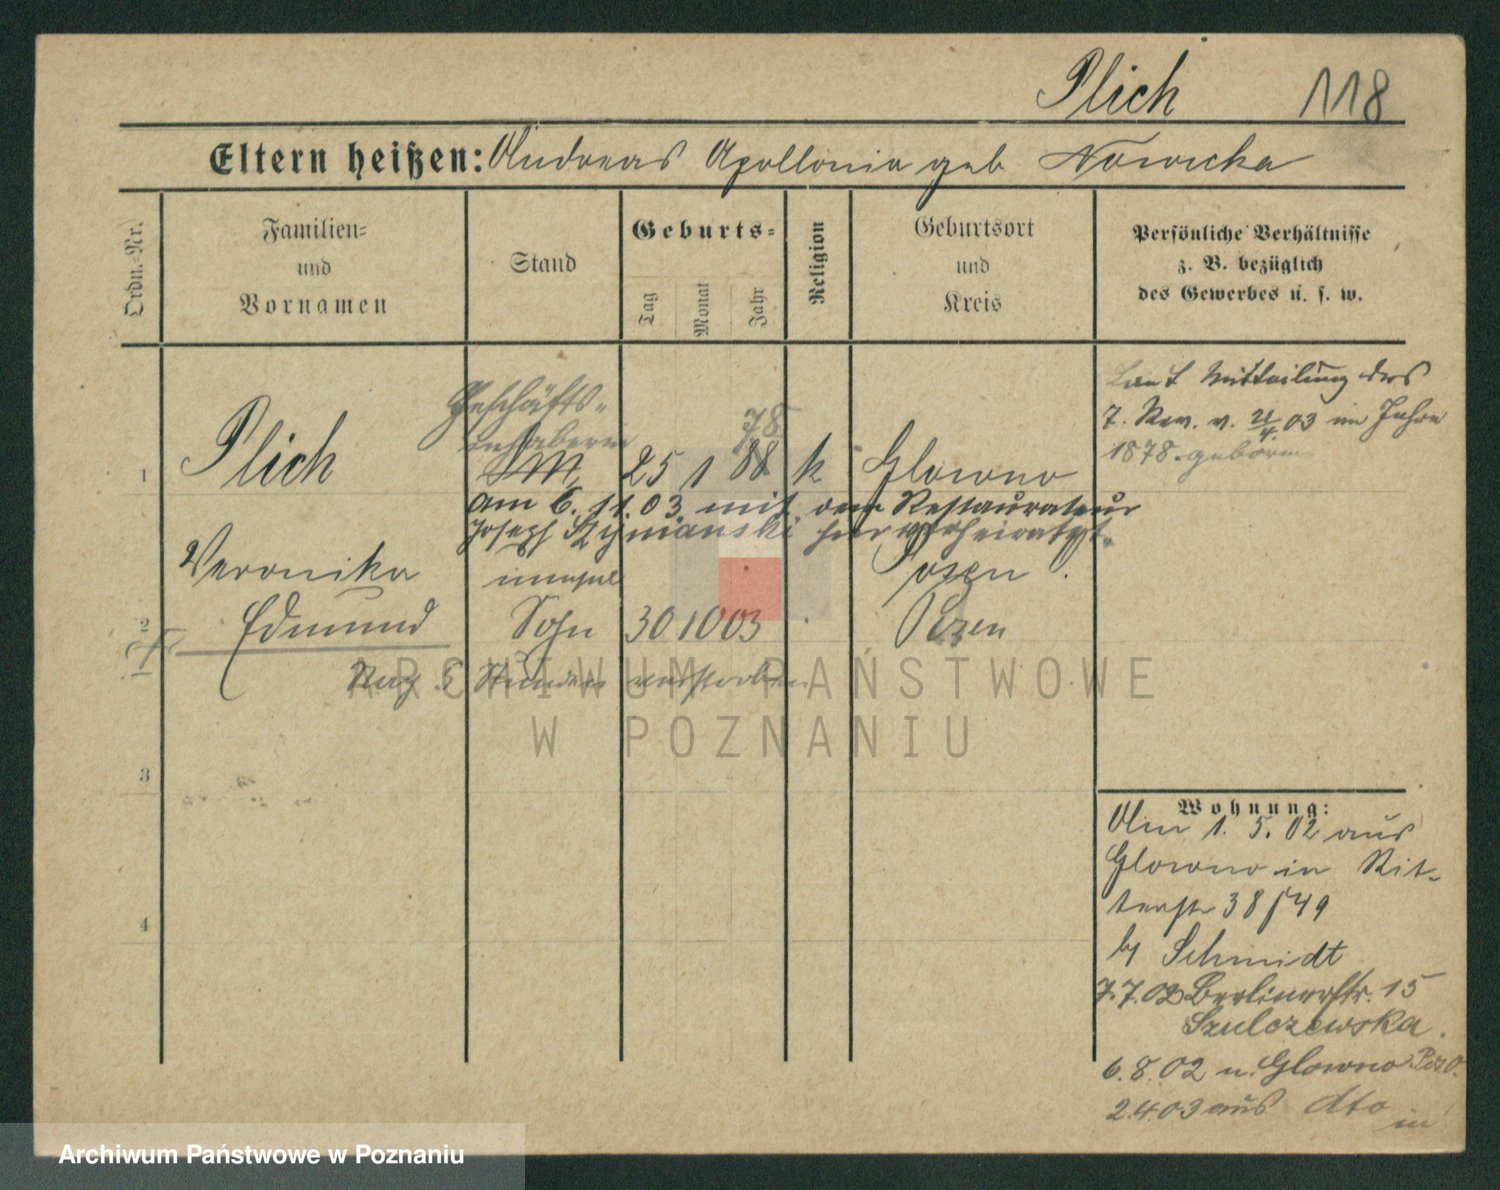 Plich 118
Eltern heißen: Andreas Apollonia geb Nowicka
Ordn.-Nr.
Familien-
und
Vornamen
Stand
Geburts-
Tag
Monat
Jahr
Religion
Geburtsort
und
Kreis
Persönliche Verhältnisse
z. B. bezüglich
des Gewerbes u. s. w.
Laut Mitteilung des
7. Rev. v. 21/4. 03 im Jahre
1878 geboren
Geschäfts-
inhaberin
78
1 Plich 25 1 88 k Glowno
am 6. 11. 03 mit dem Restaurateur
Joseph hier verheiratet.
Veronika Posen.
2 Edmund Sohn 30 10 03 Posen
Nach 5 Stunden verstorben
3
4
Wohnung:
Am 1. 5. 02 aus
Glowno in Rit-
terstr 38/49
b/ Schmidt
7.7.02 Berlinerstr. 15
Szulczewska.
6.8.02 n. Glowno Pos. O.
2.4.03 aus dto in
ARCHIWUM PAŃSTWOWE
W POZNANIU
Archiwum Państwowe w Poznaniu